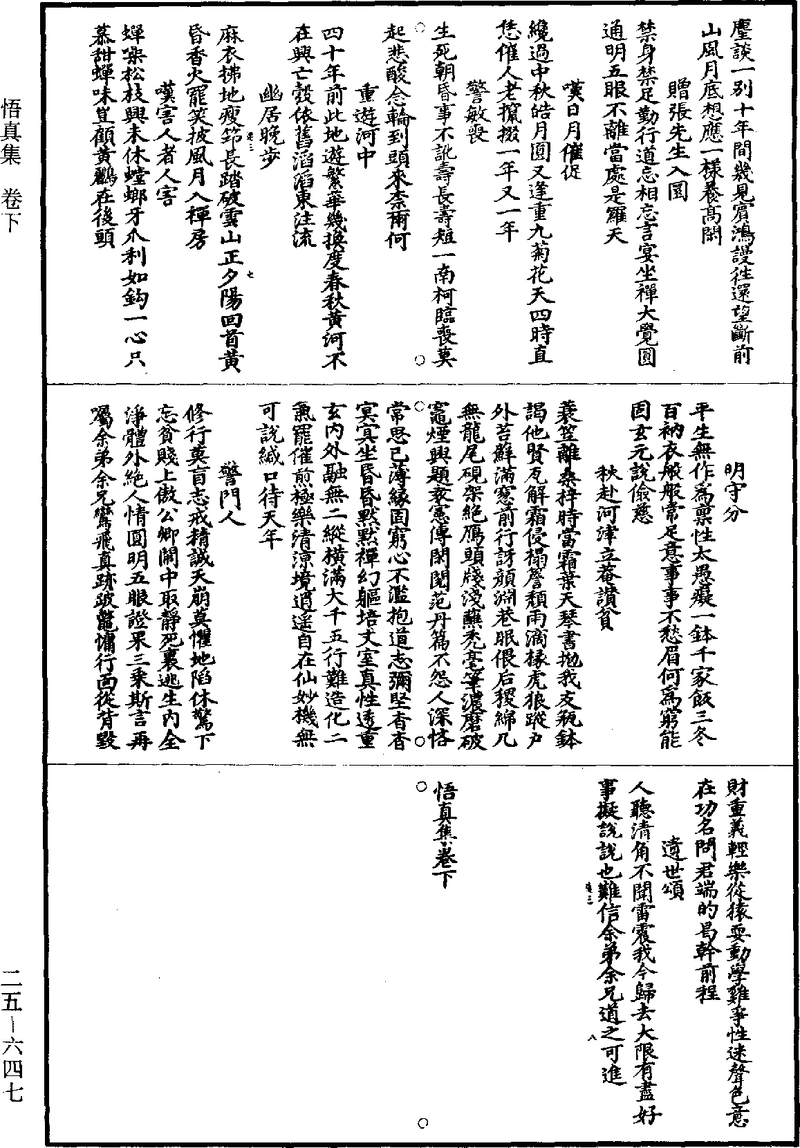 塵談一別十年間幾見賓鴻謾往還望斷前
山風月底想應一樣養高閑
贈張先生入圜
禁身禁足勤行道忘相忘言宴坐禪大覺圓
通明五眼不離當處是羅天
嘆日月催促
纔過中秋皓月圓又逢重九菊花天四時直
恁催人老攛掇一年又一年
警敏喪
生死朝昏事不訛壽長壽短一南柯臨喪莫
起悲酸念輪到頭來柰爾何
重遊河中
四十年前此地遊繁華幾換度春秋黃河不
在興亡數依舊滔滔東注流
幽居晚步
麻衣拂地瘦筇長踏破雲山正夕陽回首黃
昏香火罷笑披風月入禪房
嘆害人者人害
蟬噪松枝興未休螳螂牙爪利如鈎一心只
慕甜蟬味豈顧黃鸝在後頭
明守分
平生無作爲禀性太愚癡一鉢千家飯三冬
百衲衣般般常足意事事不愁眉何爲窮能
固玄元說儉慈
秋赴河津立菴讚貧
蓑笠離桑梓時當霜葉天琴書拋我友瓶鉢
謁他賢瓦解霜侵榻簷頹雨滴椽虎狼蹤戶
外苔蘚滿窓前行訝顏淵巷眠偎后稷綿几
無龍尾硯架絕鴈頭牋淺蘸禿毫筆濃磨破
竈煙興題袤憲傳閑閱范丹篇不怨人深恪
常思己薄緣固窮心不濫抱道志彌堅杳杳
冥冥坐昏昏默默禪幻軀培丈室真性透重
玄內外融無二縱橫滿大千五行難造化二
氣罷催煎極樂清涼境逍遙自在仙妙機無
可說緘口待天年
警門人
修行莫盲志戒精誠天崩莫懼地陷休驚下
忘貧賤上傲公卿鬧中取靜死裏逃生內全
淨體外絕人情圓明五眼證果三乘斯言再
囑余弟余兄鸞飛真跡跛鼈慵行面從背毀
財重義輕樂從猿耍動學雞爭性迷聲色意
在功名問君端的曷幹前程
遺世頌
人聽清角不聞雷震我今歸去大限有盡好
事擬說說也難信余弟余兄道之可進
悟真集卷下
悟真集 卷下
二五－六四七